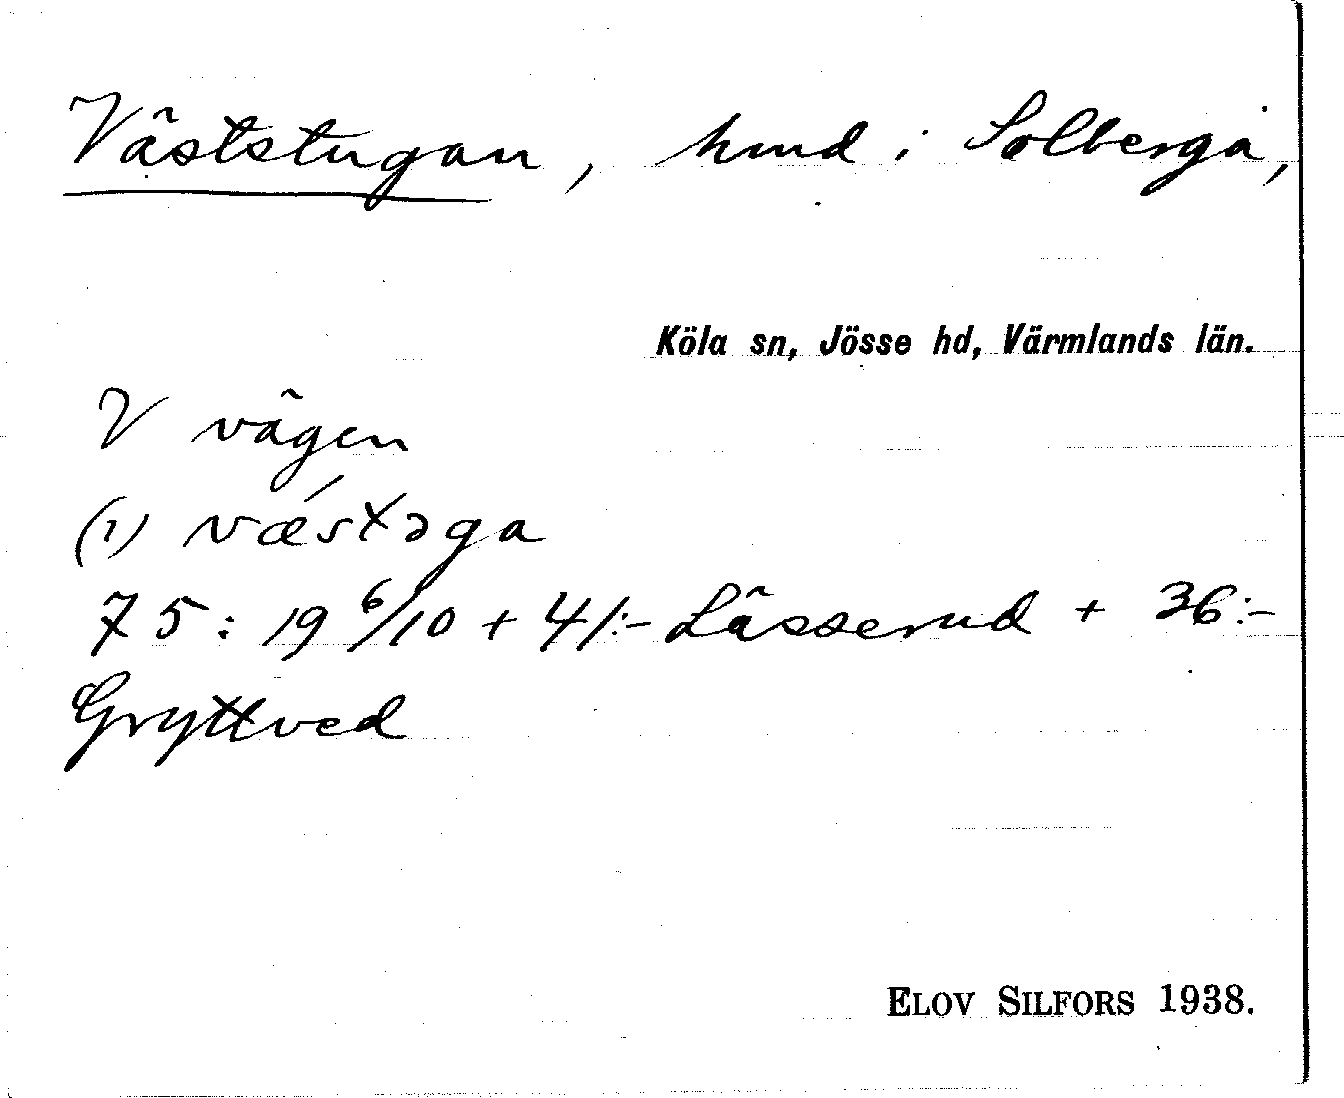 Väststugan, hmd i Solberga,
Köla sn, Jösse hd, Värmlands län.
V vägen
(1) vǽstəga
75: 19 6/10 + 41:- Lässerud + 36:-
Gryttved
ELOV SILFORS 1938.